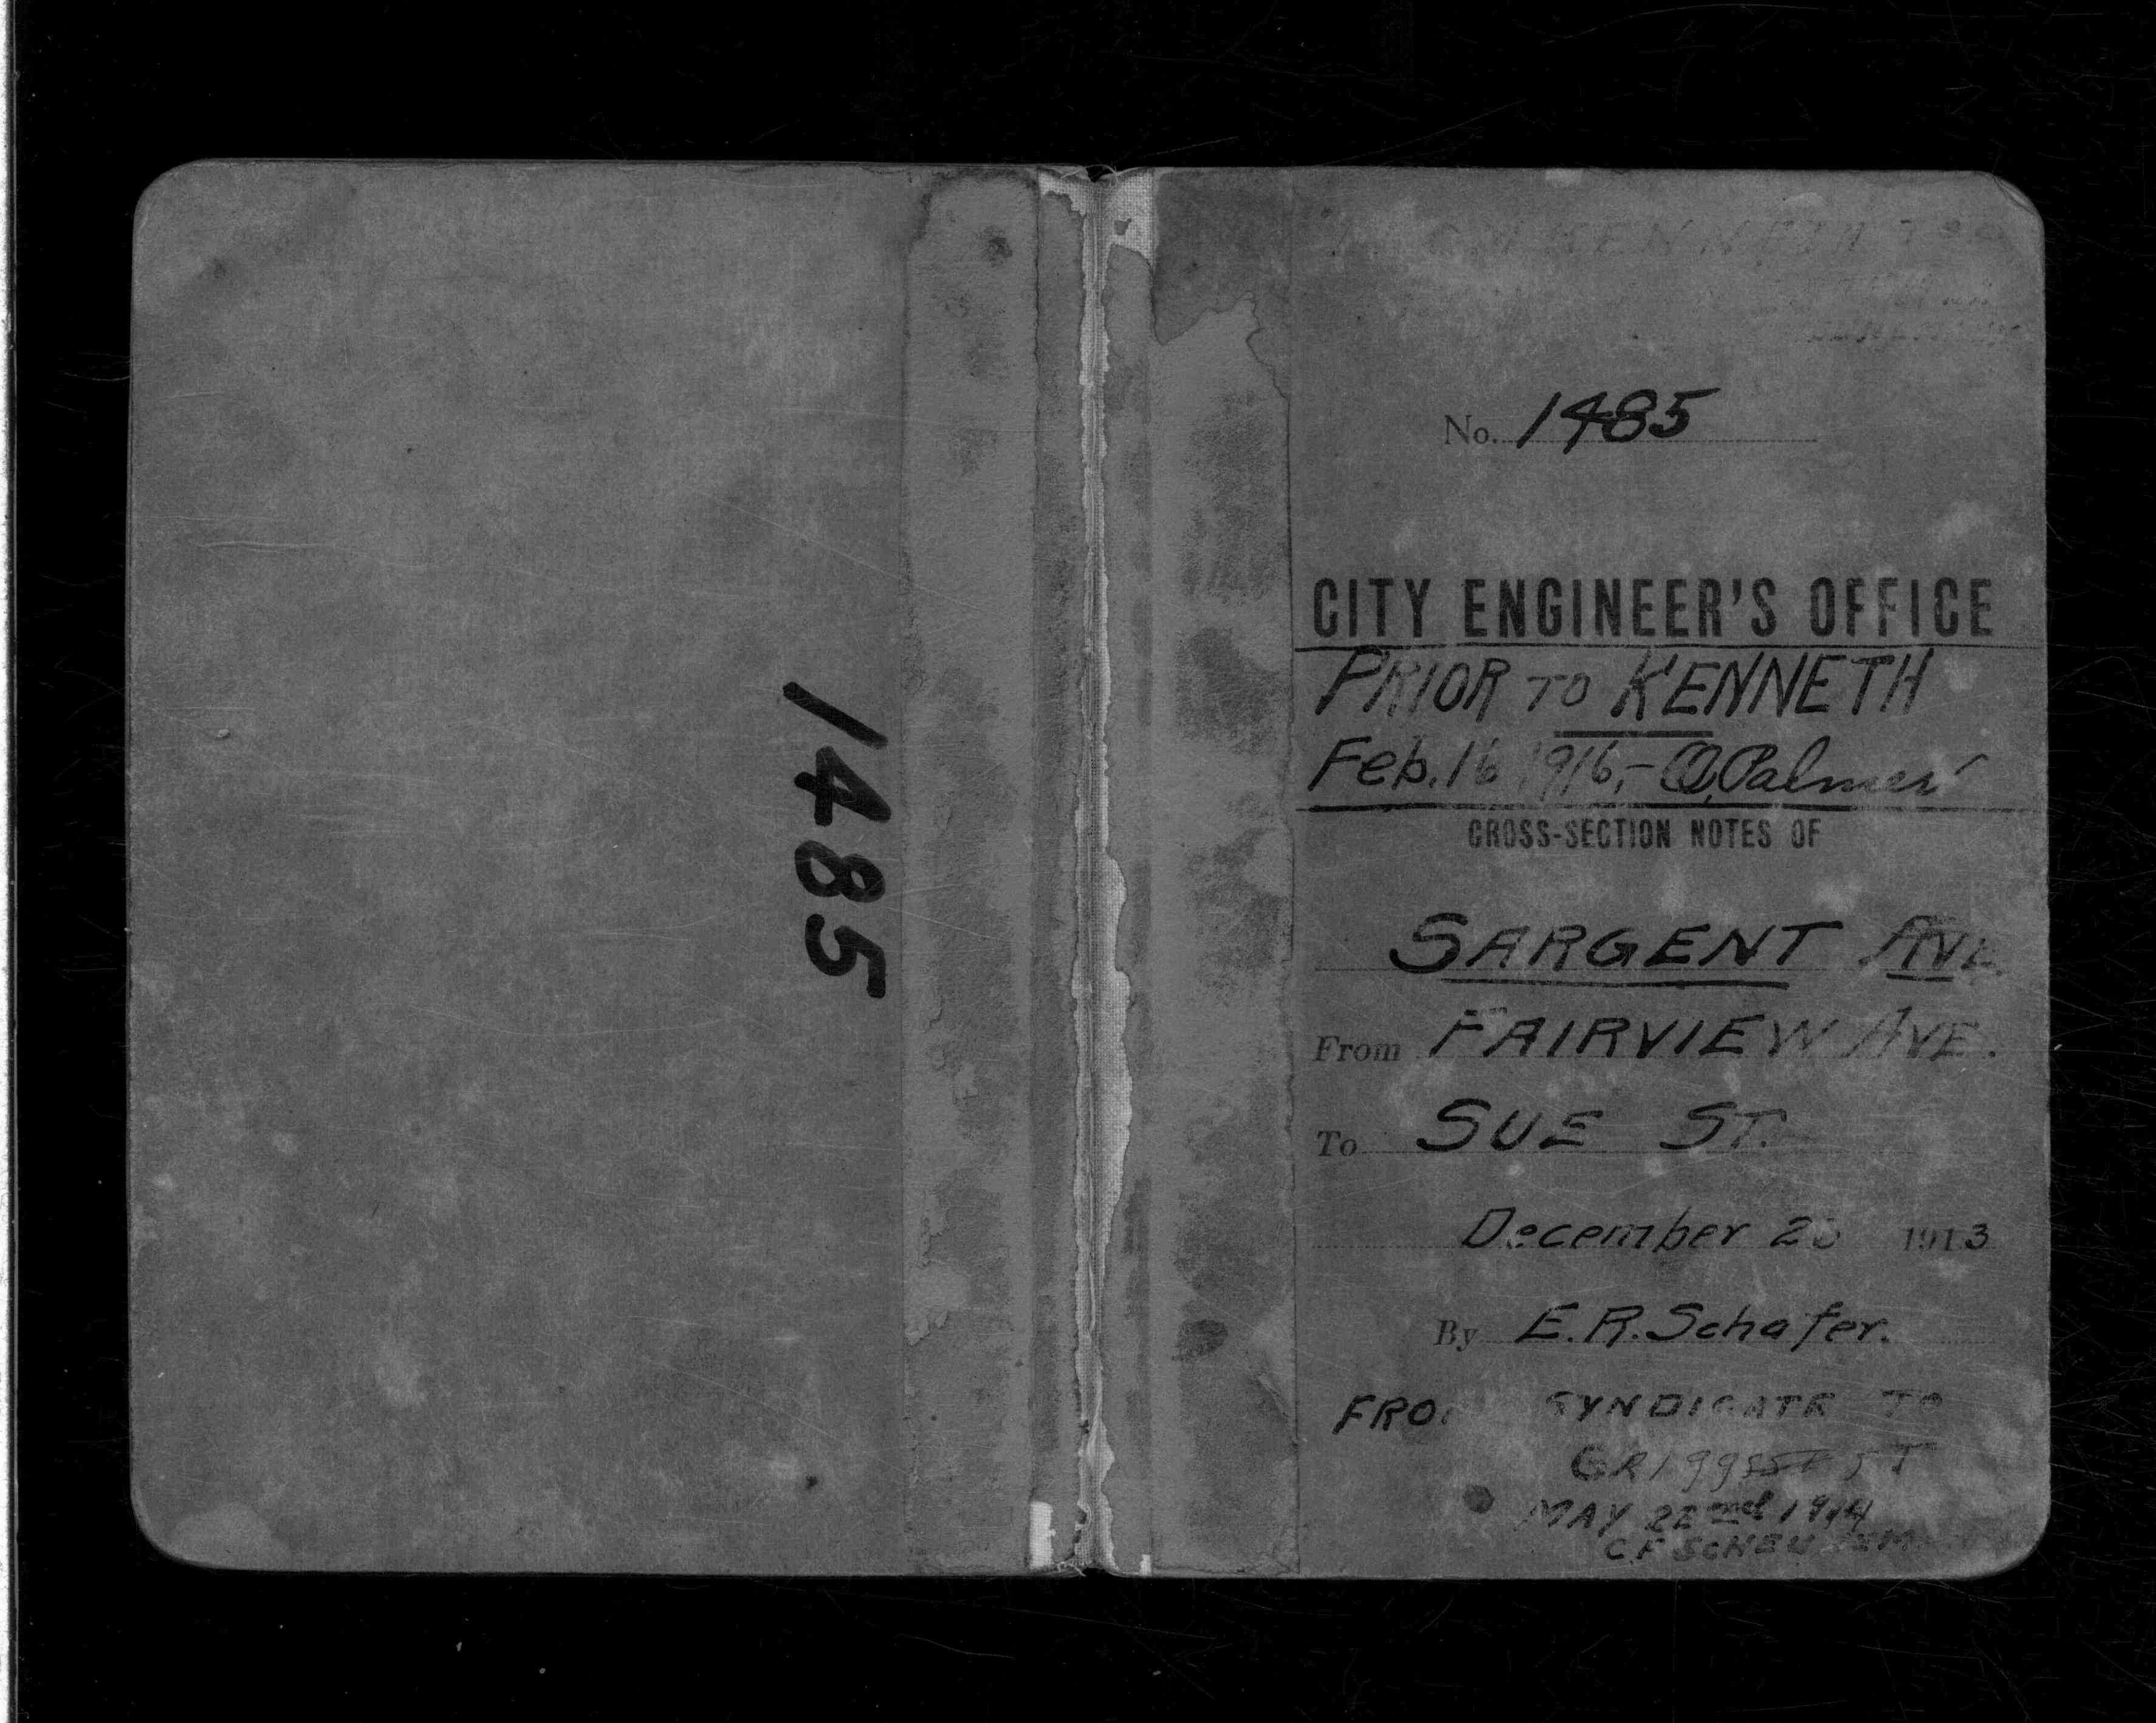 1485
KENNETH
No. 1485
CITY ENGINEER'S OFFICE
PRIOR TO KENNETH
Feb. 16 1916,- O. Palmer
CROSS-SECTION NOTES OF
SARGENT AVE.
From FAIRVIEW AVE.
To SUE ST.
December 1913
By E.R. Schafer.
SYNDICATE TO
GRIGGS ST
MAY 22nd 1914
C F